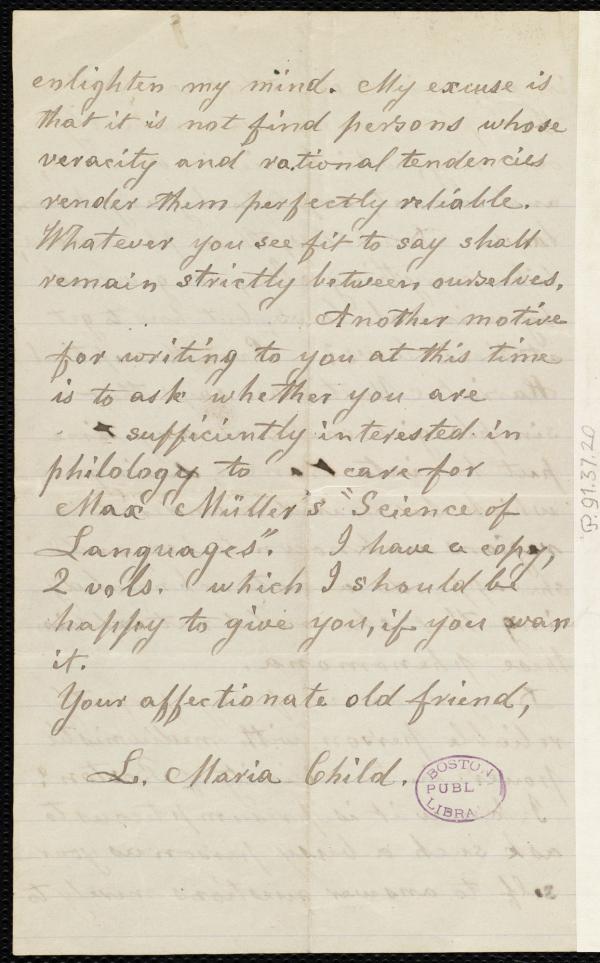 enlighten my mind. My excuse is
that it is not find persons whose
veracity and rational tendencies
render them perfectly reliable.
Whatever you see fit to say shall
remain strictly between ourselves.
Another motive
for writing to you at this time
is to ask whether you are
sufficiently interested in
philology to care for
Max Müller's "Science of
Languages". I have a copy,
2 vols. which I should be
happy to give you, if you wan
it.
Your affectionate old friend,
L. Maria Child.
BOSTON
PUBL
LIBRA
P.91.37.20